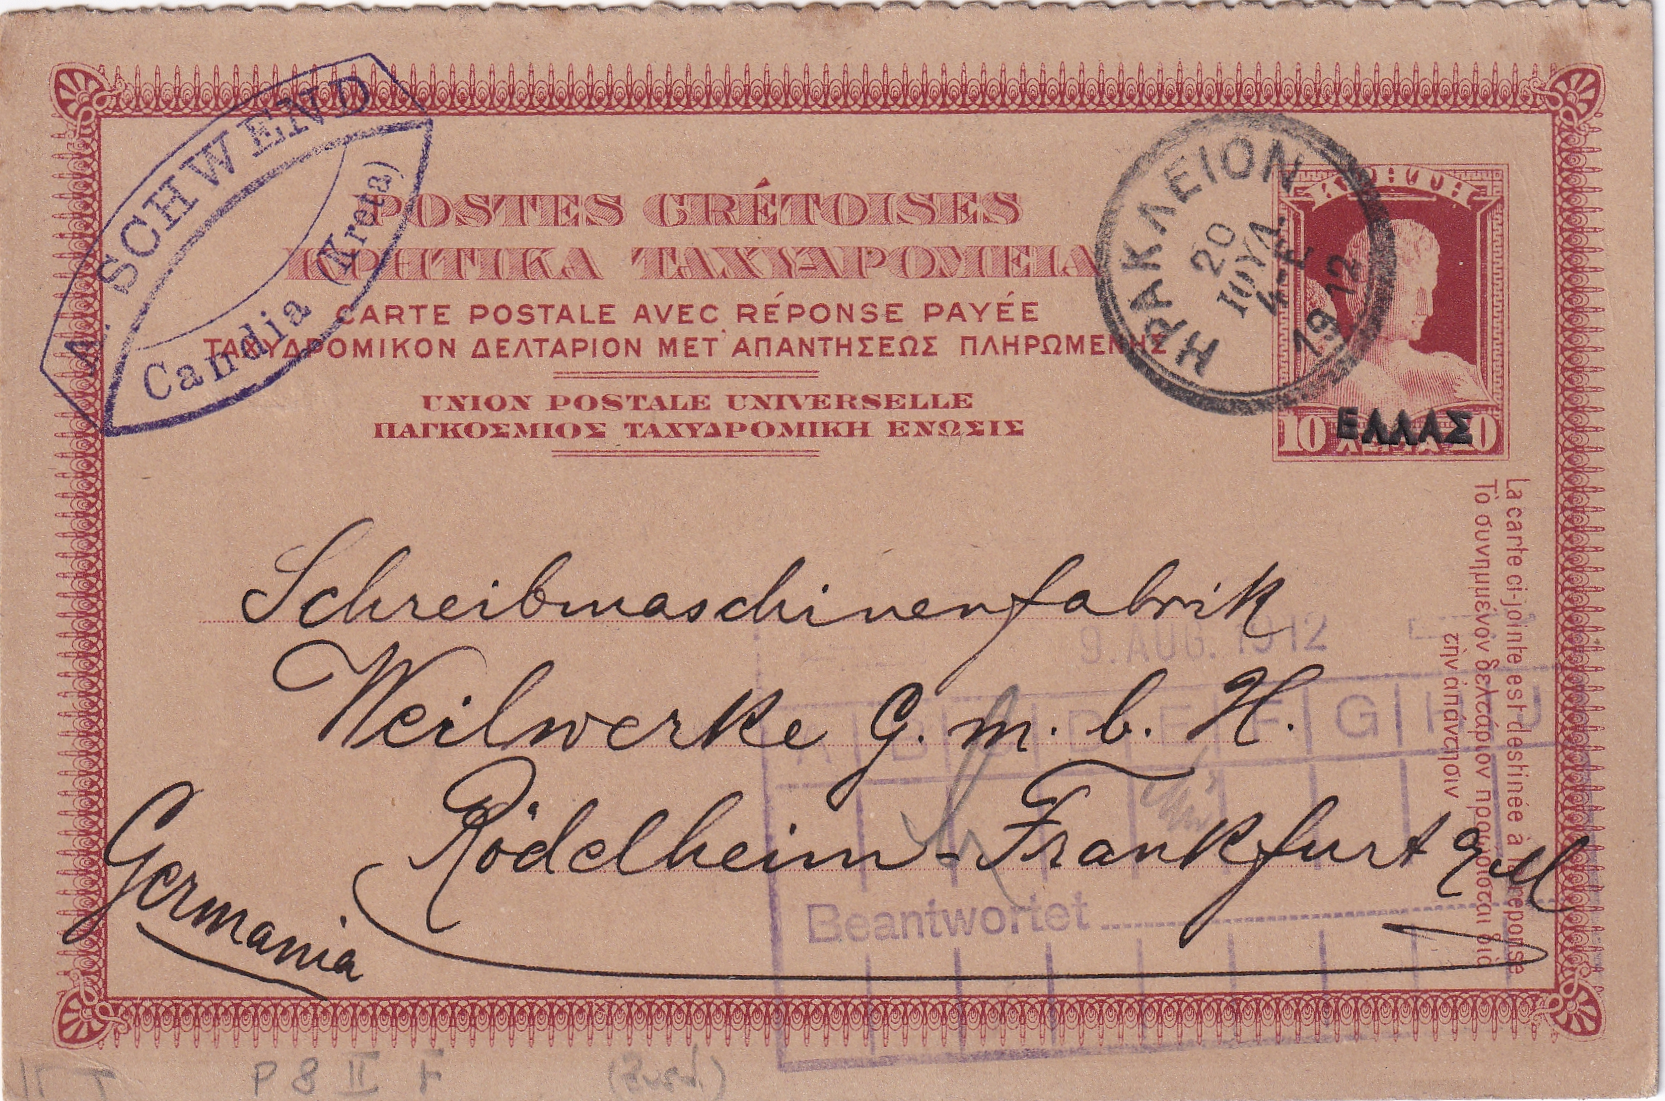 A. SCHWEND
Candia (Kreta)
POSTES CRÉTOISES
ΚΡΗΤΙΚΑ ΤΑΧΥΔΡΟΜΕΙΑ
CARTE POSTALE AVEC RÉPONSE PAYÉE
ΤΑΧΥΔΡΟΜΙΚΟΝ ΔΕΛΤΑΡΙΟΝ ΜΕΤ ΑΠΑΝΤΗΣΕΩΣ ΠΛΗΡΩΜΕΝΗΣ
UNION POSTALE UNIVERSELLE
ΠΑΓΚΟΣΜΙΟΣ ΤΑΧΥΔΡΟΜΙΚΗ ΕΝΩΣΙΣ
ΗΡΑΚΛΕΙΟΝ
20
ΙΟΥΛ.
4-Ε
1912
ΚΡΗΤΗ
ΕΛΛΑΣ
10 ΛΕΠΤΑ 10
La carte ci-jointe est destinée à la réponse
Τὸ συνημμένον δελτάριον προώρισται διὰ
τὴν ἀπάντησιν
Schreibmaschinenfabrik
Weilwerke G. m. b. H.
Rödelheim-Frankfurt a/M
Germania
9. AUG. 1912
A B C D E F G H J
Beantwortet
P 8 II F